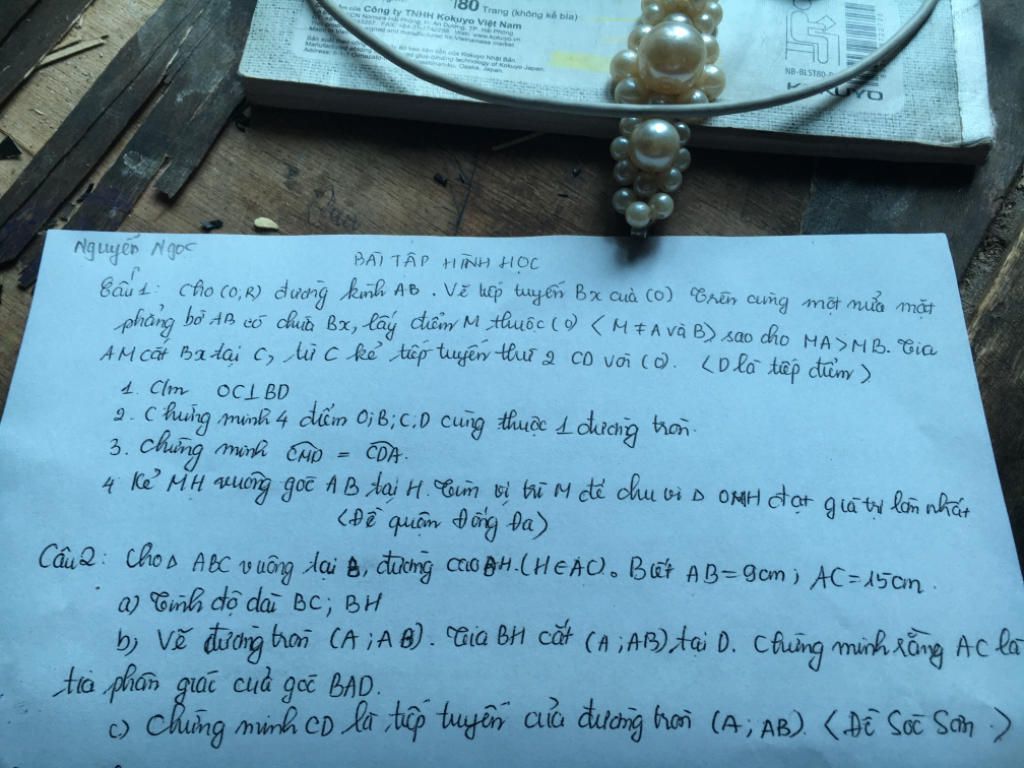 180 Trang (không kể bìa)
Công ty TNHH Kokuyo Việt Nam
NB-BLST80
KOKUYO
Nguyễn Ngọc
BÀI TẬP HÌNH HỌC
Câu 1: Cho (O,R) đường kính AB. Vẽ tiếp tuyến Bx của (O) Trên cùng một nửa mặt
phẳng bờ AB có chứa Bx, lấy điểm M thuộc (O) <M ≠ A và B> sao cho MA > MB. Tia
AM cắt Bx tại C, từ C kẻ tiếp tuyến thứ 2 CD với (O). <D là tiếp điểm>
1. C/m OC⊥BD
2. Chứng minh 4 điểm O;B;C;D cùng thuộc 1 đường tròn.
3. Chứng minh CMD = CDA.
4 Kẻ MH vuông góc AB tại H. Tìm vị trí M để chu vi Δ OMH đạt giá trị lớn nhất
<Đề quận Đống Đa>
Câu 2: Cho Δ ABC vuông tại B, đường cao BH.(H∈AC). Biết AB=9cm; AC=15cm.
a) Tính độ dài BC; BH
b) Vẽ đường tròn (A;AB). Tia BH cắt (A;AB) tại D. Chứng minh rằng AC là
tia phân giác của góc BAD.
c) Chứng minh CD là tiếp tuyến của đường tròn (A;AB). <Đề Sóc Sơn.>